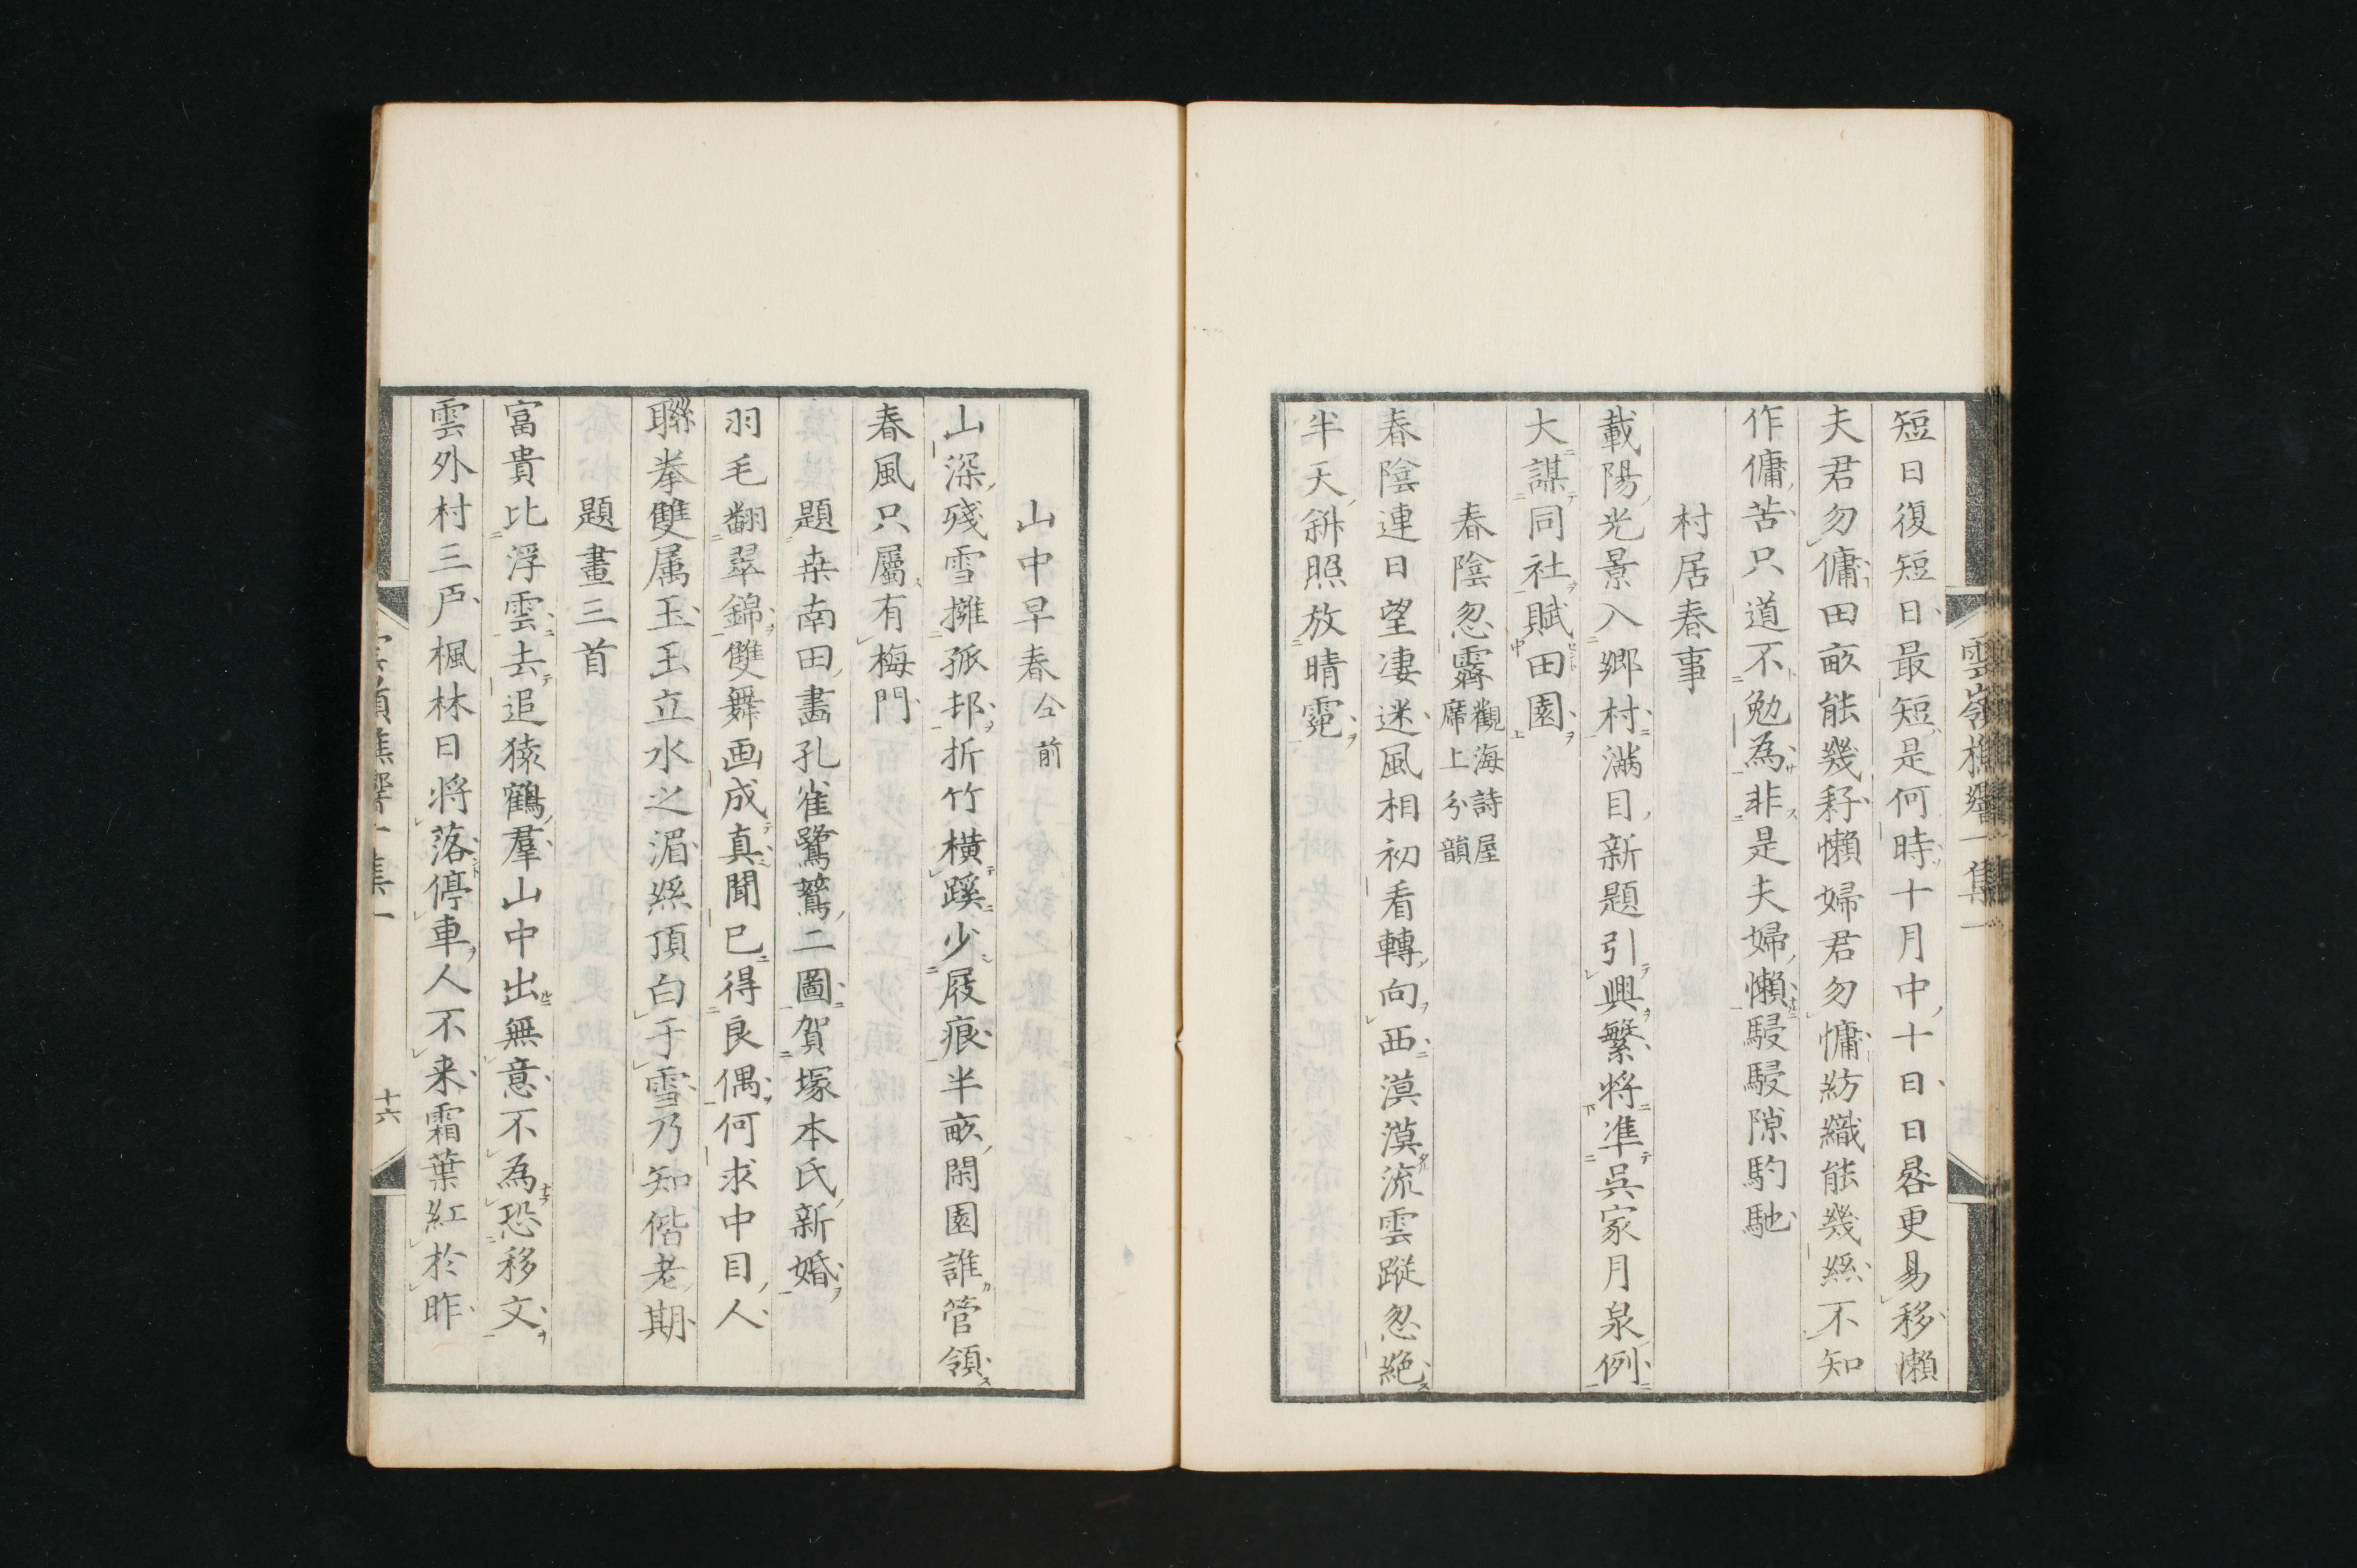 雲嶺樵響一集一
短日復短日最短是何時十月中十日日晷更易移懶
夫君勿傭田畝能幾耔懶婦君勿慵紡織能幾絲不知
作傭苦只道不勉為非是夫婦懶駸駸隙駒馳
村居春事
載陽光景入鄉村滿目新題引興繁將準吳家月泉例
大謀同社賦田園
春陰忽霽觀海詩屋
席上分韻
春陰連日望凄迷風相初看轉向西漠漠流雲蹤忽絶
半天斜照放晴霓
山中早春仝前
山深殘雪擁孤邨折竹橫蹊少屐痕半畝閑園誰管領
春風只屬有梅門
題桒南田畵孔雀鷺鷥二圖賀塚本氏新婚
羽毛翻翠錦雙舞画成真聞已得良偶何求中目人
聯拳雙属玉玉立水之湄絲頂白于雪乃知偕老期
題畫三首
富貴比浮雲去追猿鶴羣山中出無意不為恐移文
雲外村三戸楓林日将落停車人不来霜葉紅於昨
十六